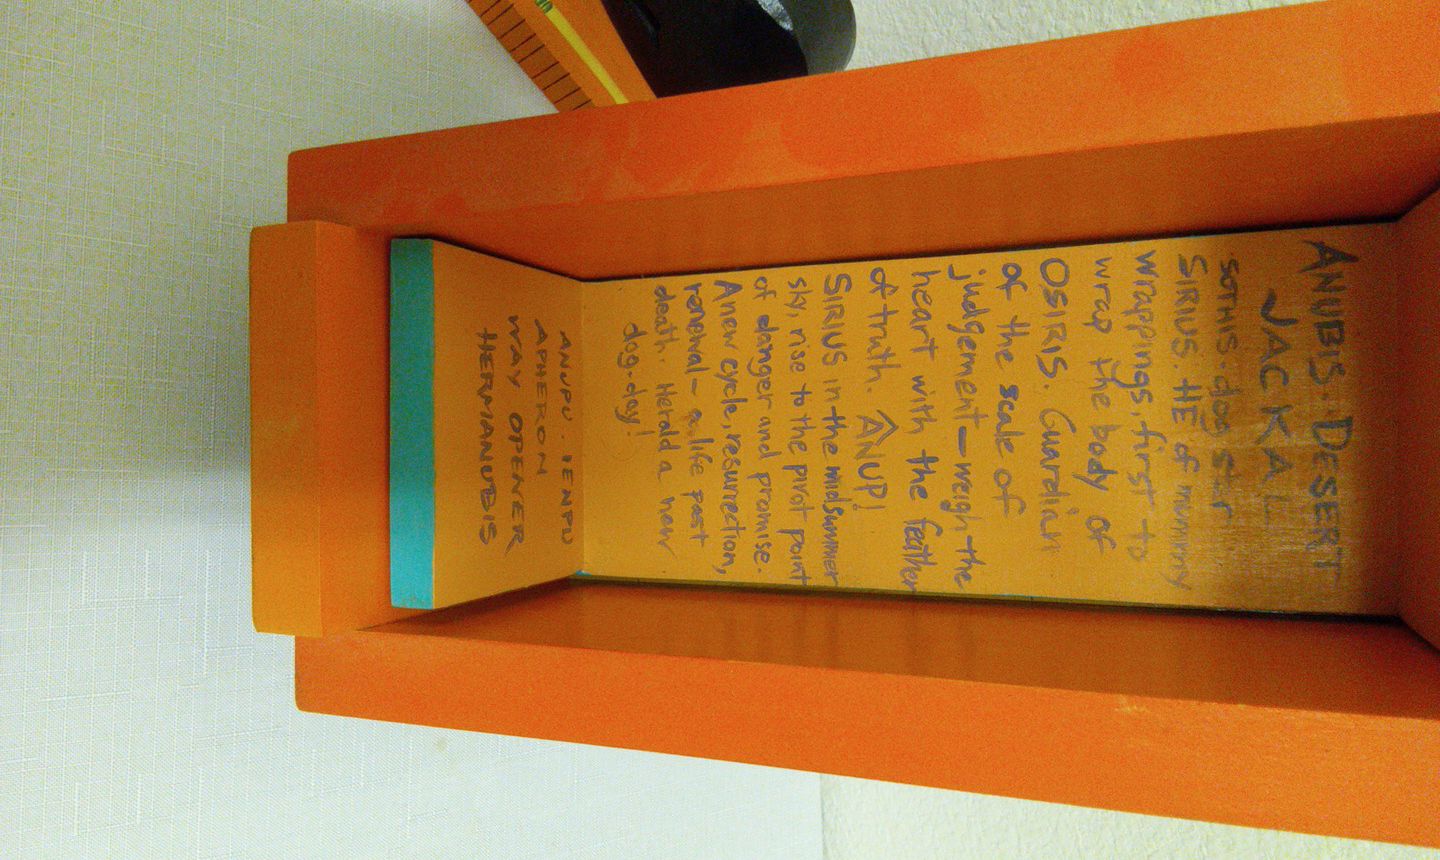 ANUBIS. DESERT
JACKAL
SOTHIS. dog star
SIRIUS. HE of mummy
wrappings, first to
wrap the body of
OSIRIS. Guardian
of the scale of
judgement — weigh the
heart with the feather
of truth. ANUP!
SIRIUS in the midsummer
sky, rise to the pivot point
of danger and promise.
A new cycle, resurrection,
renewal — a life past
death. Herald a new
dog-day!
ANUPU. IENPU
APHERON
WAY OPENER
HERMANUBIS